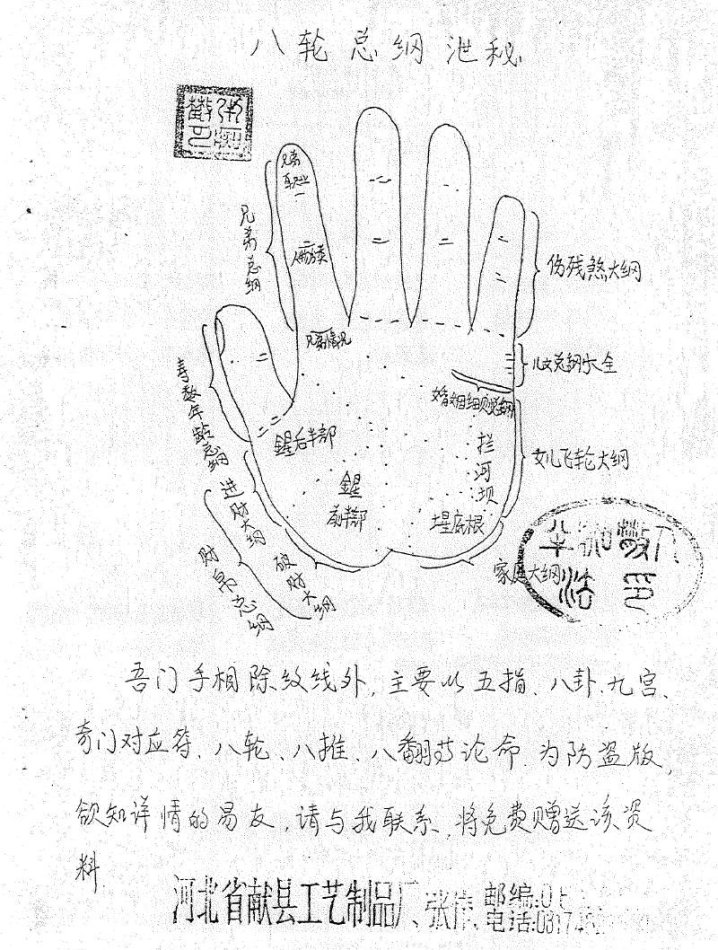 八轮总纲泄秘
兄弟
职业
兄弟总纲
兄弟情况
伤残煞大纲
儿女总纲大全
婚姻细则总纲
寿数年龄总纲
拦河坝
女儿飞轮大纲
后半部
进财大纲
前半部
底根
破财大纲
财帛总纲
家庭大纲
吾门手相除纹线外,主要以五指、八卦、九宫、
奇门对应符、八轮、八推、八翻等论命.为防盗版,
欲知详情的易友,请与我联系,将免费赠送该资
料
河北省献县工艺制品厂、张
邮编:0
电话:0317